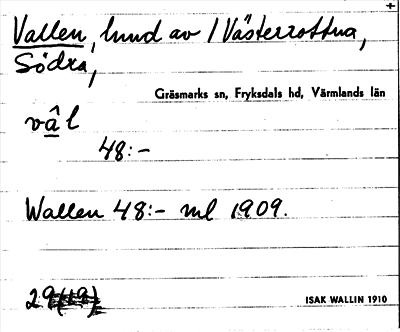 Vallen, lund av / Västerrottna,
Södra,
Gräsmarks sn, Fryksdals hd, Värmlands län
vâl
48:-
Wallen 48:- ml 1909.
29
ISAK WALLIN 1910